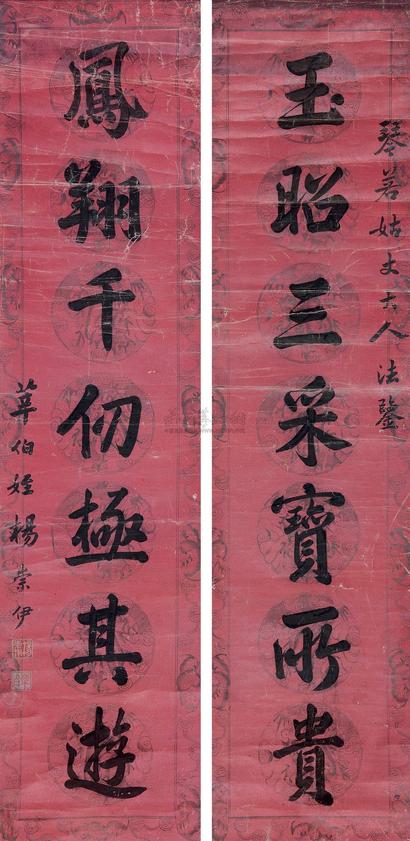 琴若姑丈大人法鑒
玉昭三采寶所貴
鳳翔千仞極其遊
莘伯姪楊崇伊